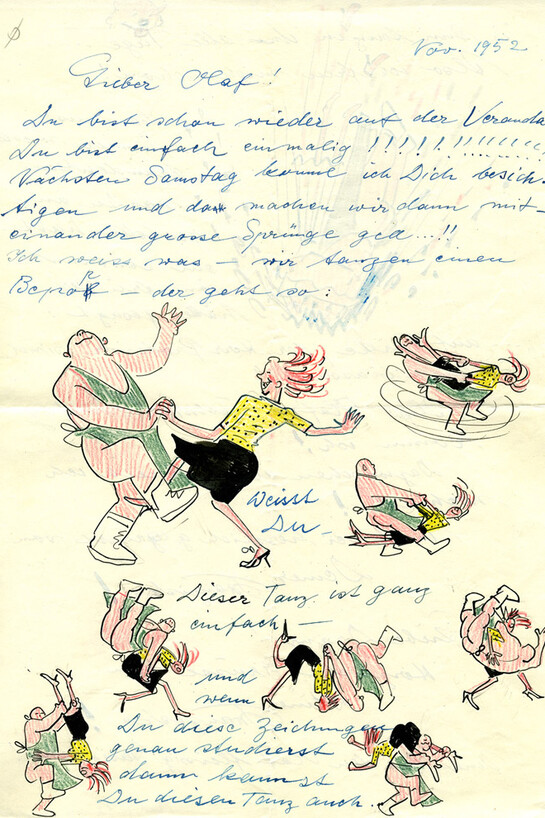 Nov. 1952
Lieber Olaf!
Du bist schon wieder auf der Veranda
Du bist einfach einmalig !!!!!!!!!!!!!!
Nächsten Samstag komme ich Dich besich-
tigen und da machen wir dann mit-
einander grosse Sprünge gell...!!
Ich weiss was – wir tanzen einen
– der geht so:
Weisst
Du –
Dieser Tanz ist ganz
einfach –
und
wenn
Du diese Zeichnungen
genau studierst
dann kannst
Du diesen Tanz auch.